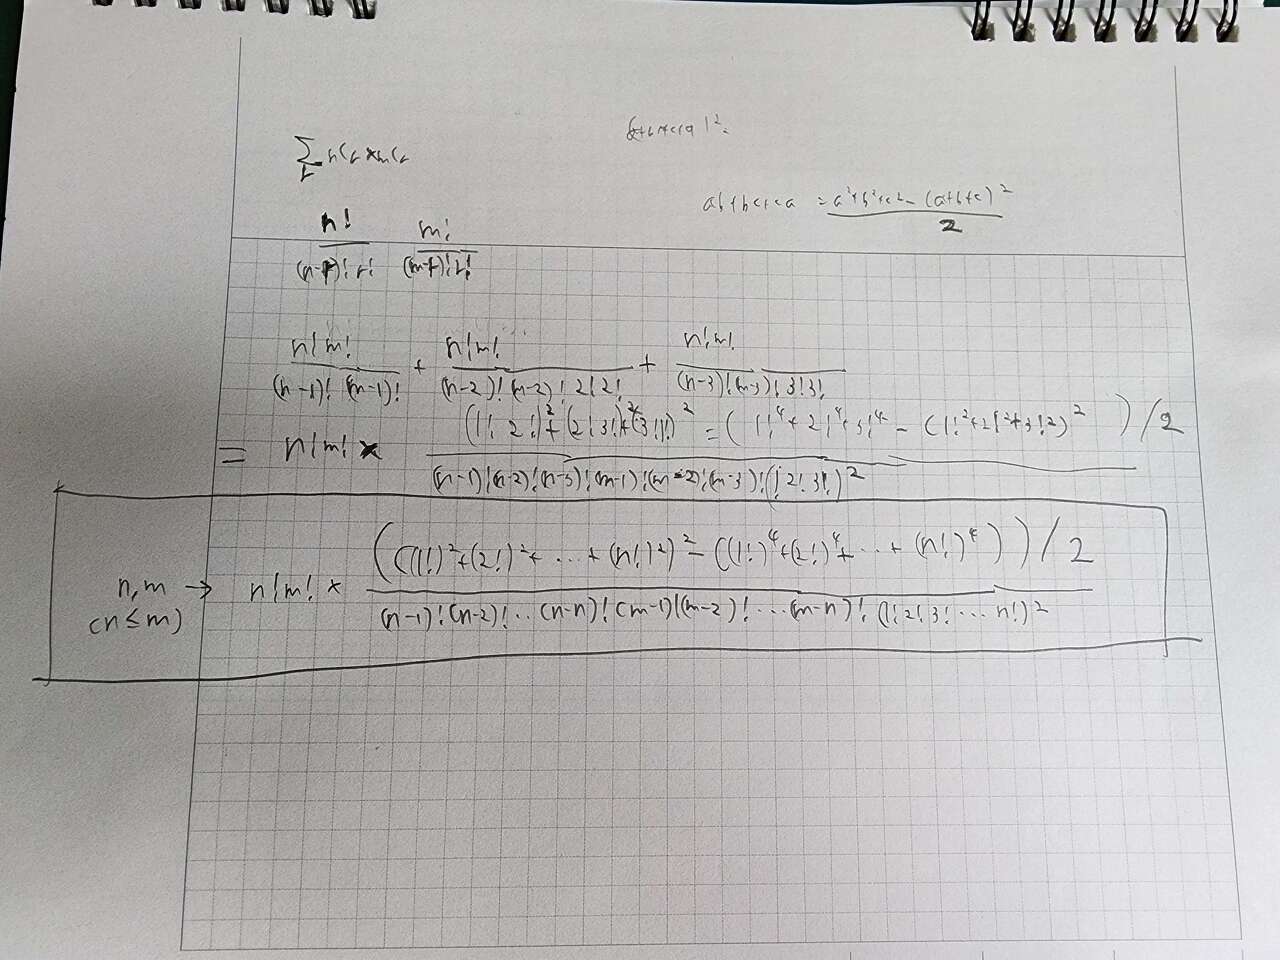 (a+b+c+a)².
Σ nCr × mCr
r
ab+bc+ca = a²+b²+c² - (a+b+c)² / 2
n! / (n-r)! r! m! / (m-r)! r!
n! m! / (n-1)! (m-1)! + n! m! / (n-2)! (m-2)! 2! 2! + n! m! / (n-3)! (m-3)! 3! 3!
= n! m! × (1! 2!)² + (2! 3!)² + (3! 1!)² / (n-1)! (n-2)! (n-3)! (m-1)! (m-2)! (m-3)! (1! 2! 3!)² = (1!⁴ + 2!⁴ + 3!⁴ - (1!² + 2!² + 3!²)²) / 2
n, m → n! m! × (((1!)² + (2!)² + ... + (n!)²)² - ((1!)⁴ + (2!)⁴ + ... + (n!)⁴)) / 2
(n ≤ m) (n-1)! (n-2)! ... (n-n)! (m-1)! (m-2)! ... (m-n)! (1! 2! 3! ... n!)²